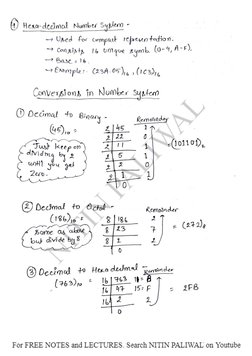 ④ Hexa-decimal Number System -
→ Used for compact representation.
→ Consists 16 unique symb. (0-9, A-F).
→ Base = 16.
→ Example: (23A.05)₁₆, (1C3)₁₆
Conversions in Number System
① Decimal to Binary:
Remainder
(45)₁₀
2 | 45
2 | 22 1
2 | 11 0
2 | 5 1
2 | 2 1
2 | 1 0
0 1
(101101)₂
Just keep on
dividing by 2
until you get
Zero.
② Decimal to Octal -
Remainder
(186)₁₀
8 | 186
8 | 23 2
8 | 2 7
0 2
(272)₈
same as above
but divide by 8
③ Decimal to Hexadecimal -
Remainder
(763)₁₀
16 | 763 11 = B
16 | 47 15 = F
16 | 2 2
0
2FB
NITIN PALIWAL
For FREE NOTES and LECTURES. Search NITIN PALIWAL on Youtube